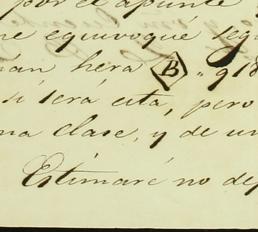 por el apunte
me equivoqué segu
man hera B "
si será esta, pero
na clase, y de un
Estimaré no dej